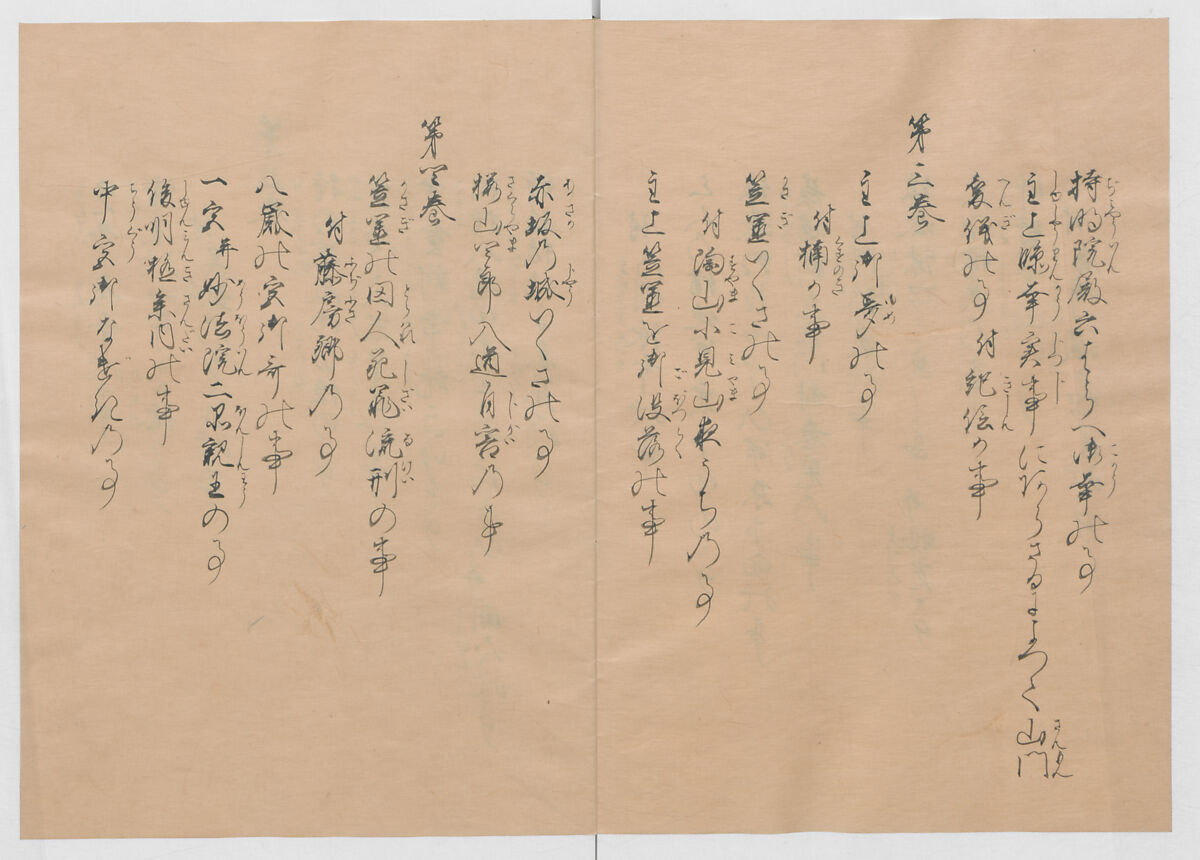 持明院殿六はらへ御幸の事
主上臨幸実事にあらさるによつて山門
変儀の事付紀信か事
第三巻
主上御夢の事
付楠か事
笠置いくさの事
付陶山小見山夜うちの事
主上笠置を御没落の事
赤坂の城いくさの事
桜山四郎入道自害の事
第四巻
笠置の囚人死罪流刑の事
付藤房卿の事
八歳の宮御哥の事
一宮并妙法院二品親王の事
俊明極参内の事
中宮御なげきの事